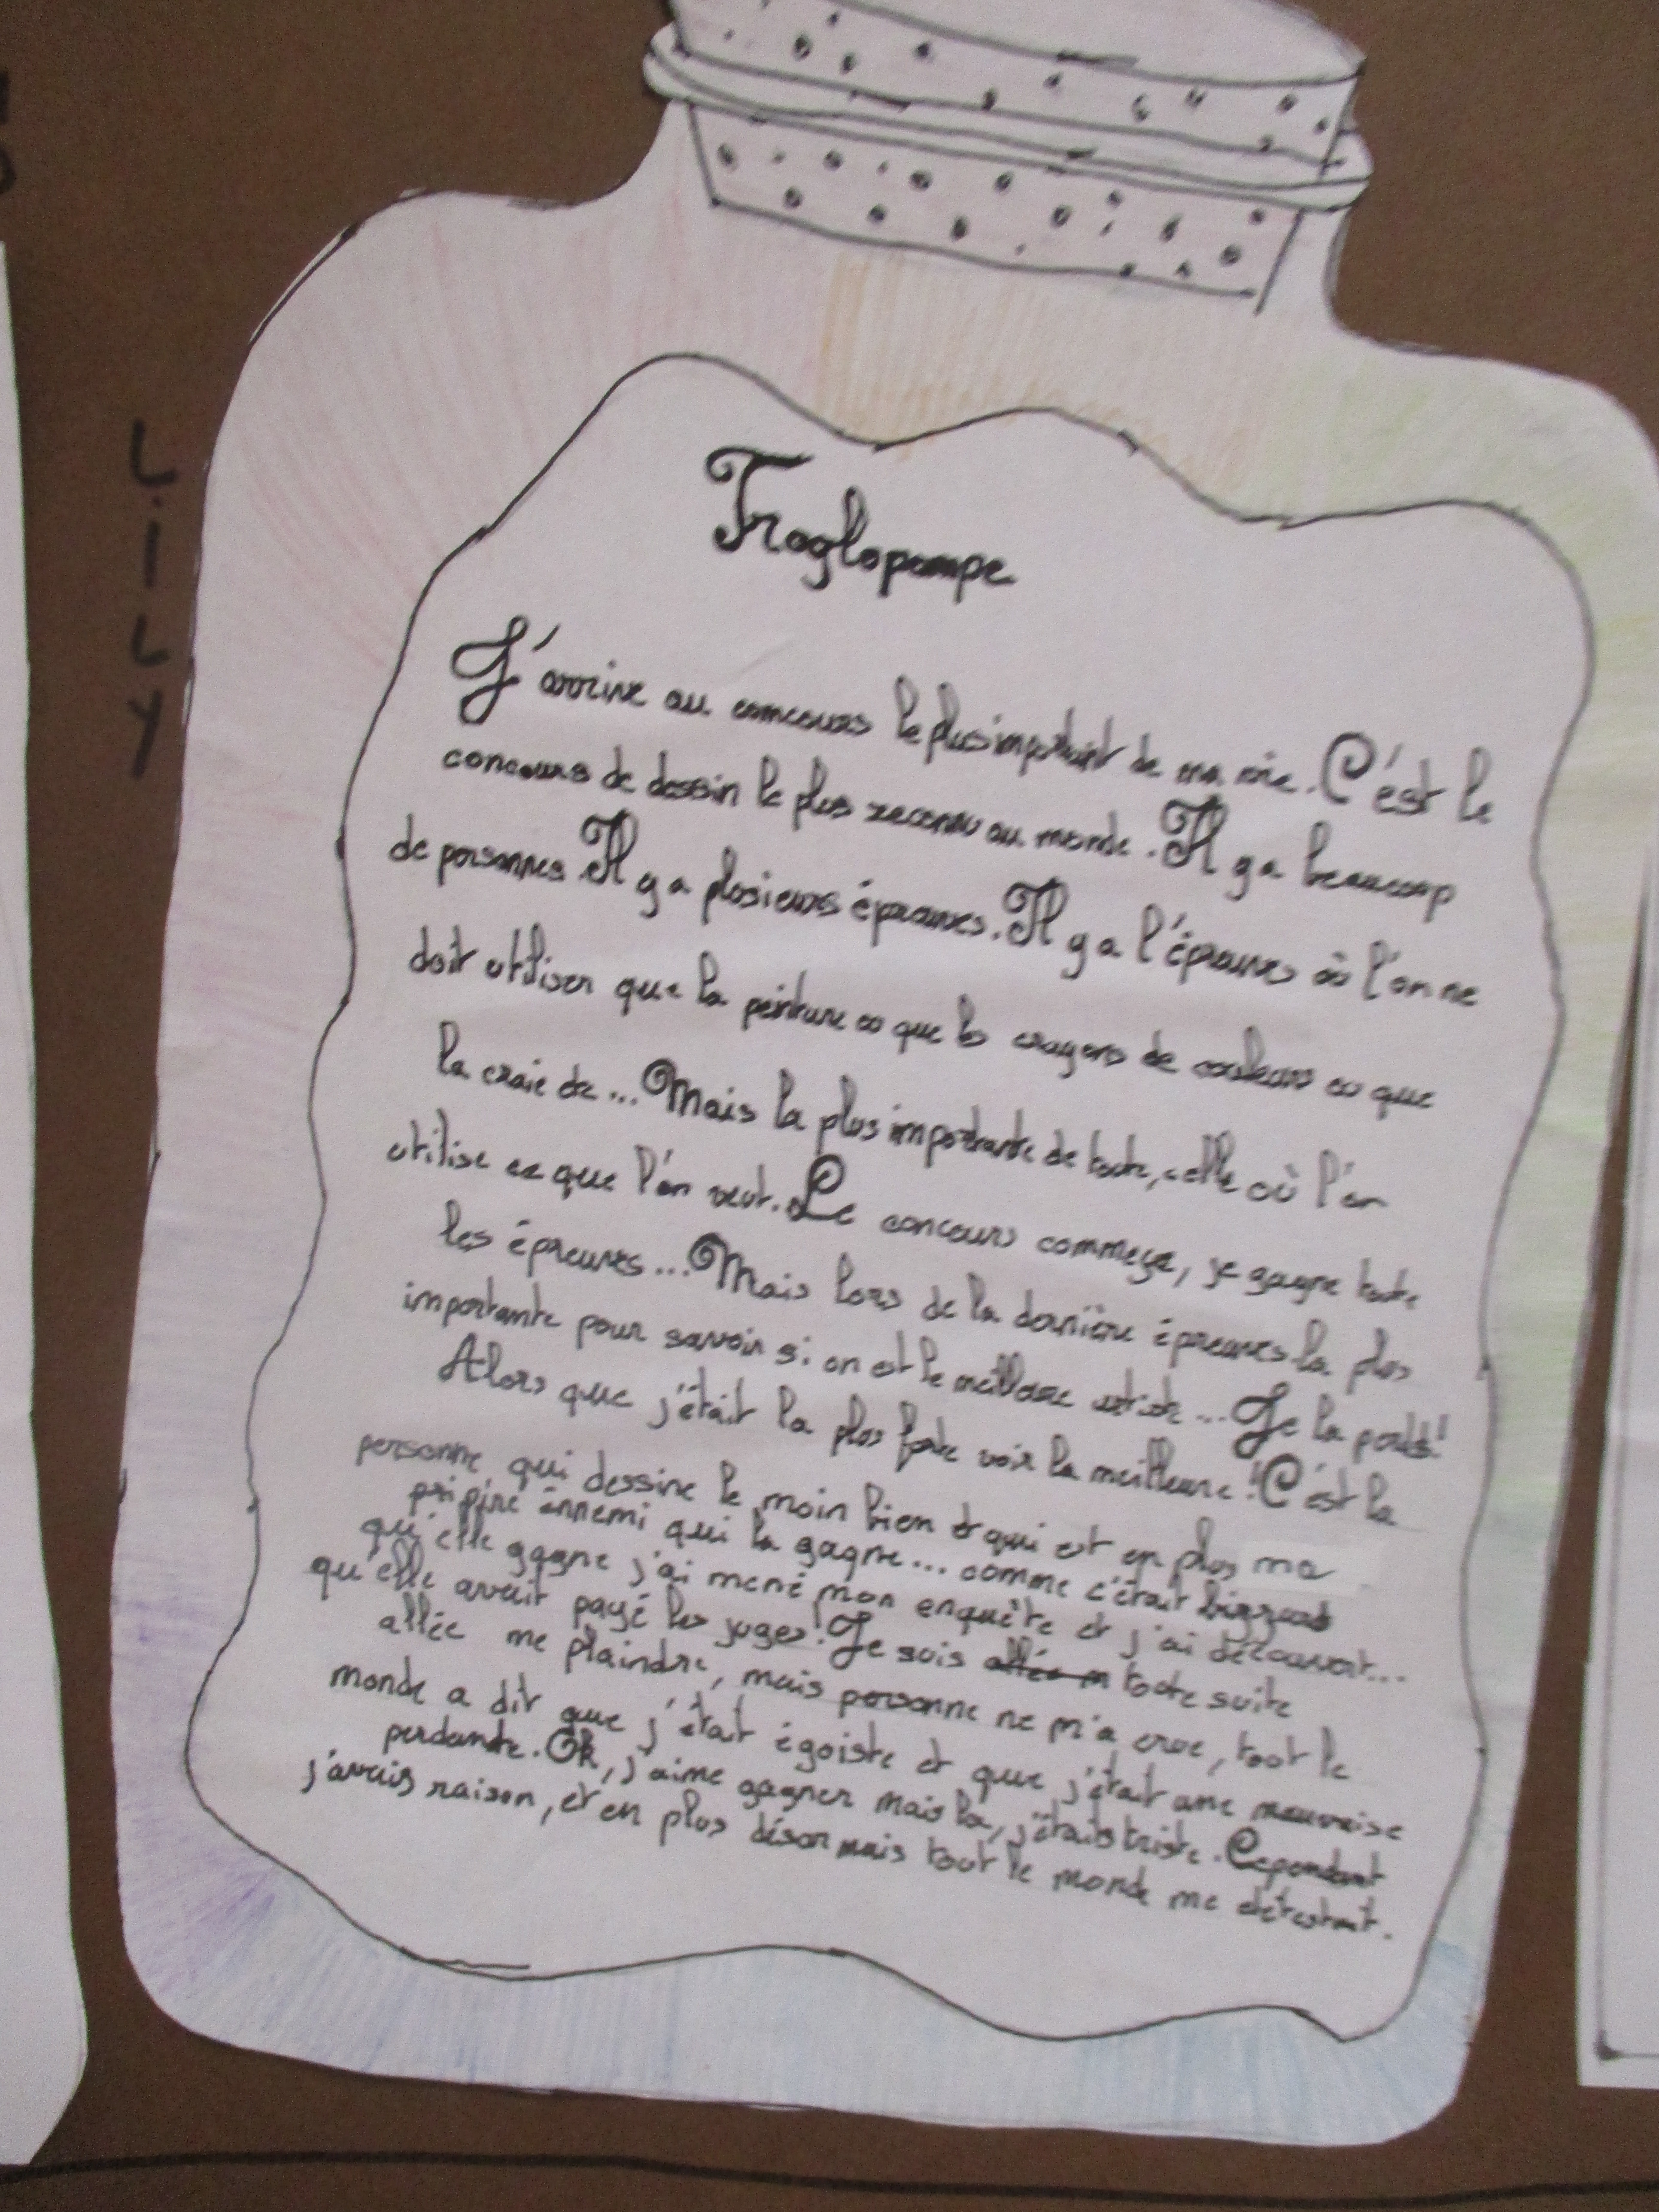 LILLY
Troglopompe
J'arrive au concours le plus important de ma vie. C'est le
concours de dessin le plus reconnu au monde. Il y a beaucoup
de personnes. Il y a plusieurs épreuves. Il y a l'épreuves où l'on ne
doit utiliser que la peinture ou que les crayons de couleurs ou que
la craie de... Mais la plus importante de toute, celle où l'on
utilise ce que l'on veut. Le concours commeçe, je gagne toute
les épreuves... Mais lors de la dernière épreuves la plus
importante pour savoir si on est le meilleure artiste... Je la perds!
Alors que j'était la plus forte voir la meilleure! C'est la
personne qui dessine le moin bien et qui est en plus ma
pire énnemi qui la gagne... comme c'était
qu'elle gagne j'ai mené mon enquête et j'ai découvert...
qu'elle avait payé les juges! Je suis toute suite
allée me plaindre, mais personne ne m'a crue, tout le
monde a dit que j'était égoiste et que j'était une mauvaise
perdante. Ok, j'aime gagner mais la, j'étais triste. Cependant
j'avais raison, et en plus désormais tout le monde me détestait.